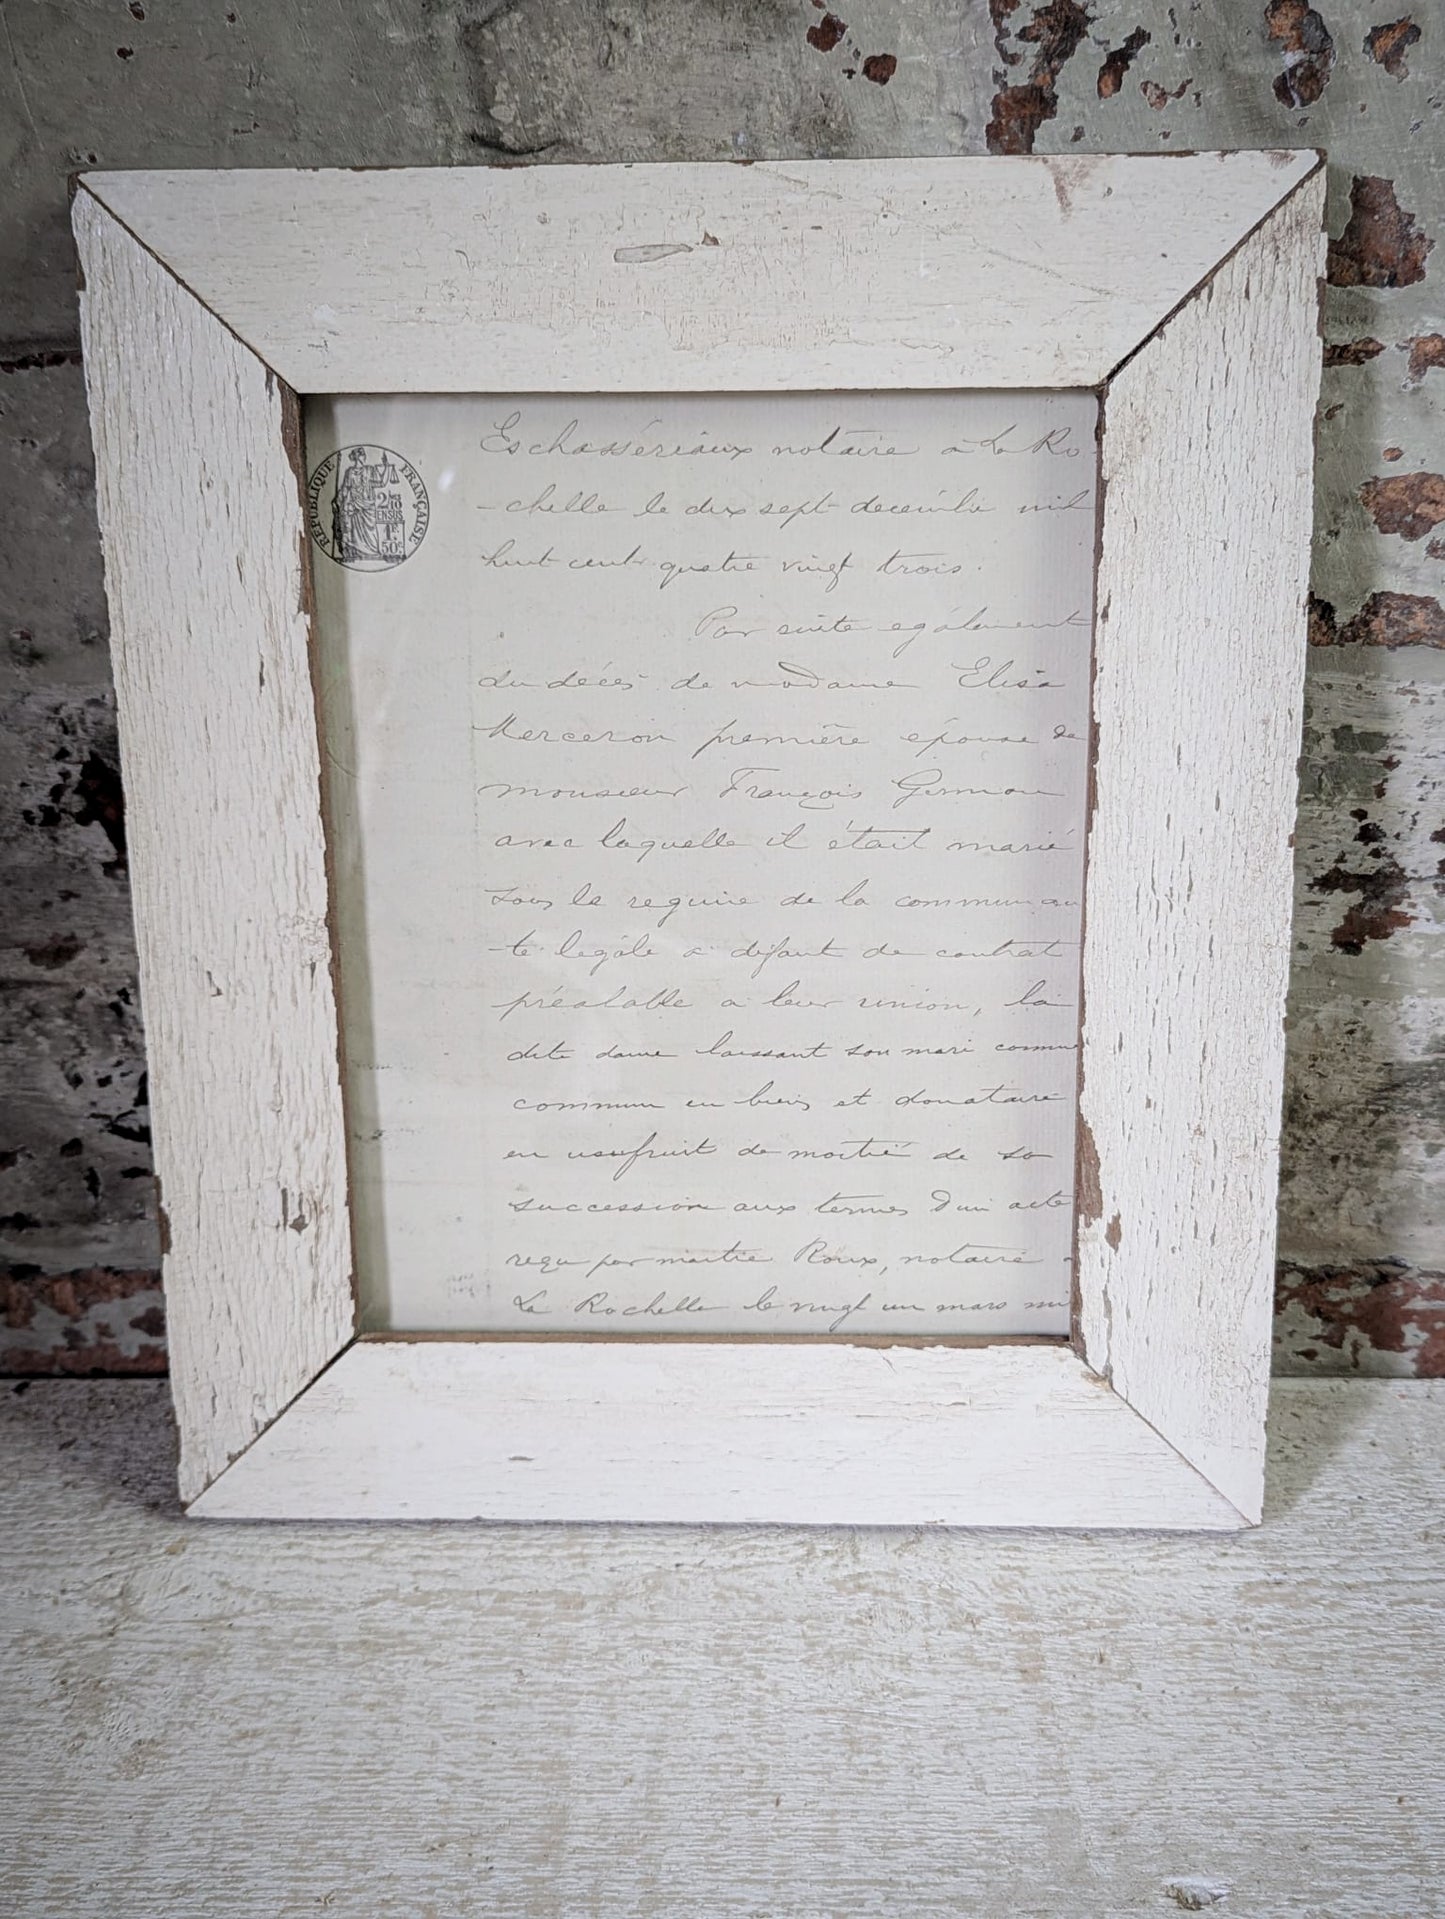 RÉPUBLIQUE FRANÇAISE
2/10
EN SUS
1F.
50c.
Eschassériaux notaire à La Ro-
-chelle le dix sept decembre mil
huit cent quatre vingt trois.
Par suite également
du décès de madame Elisa
Merceron première épouse de
monsieur François Germon
avec laquelle il était marié
sous le regime de la communau
-té légale à défaut de contrat
préalable a leur union, la
dite dame laissant son mari comme
commun en biens et donataire
en usufruit de moitié de sa
succession aux termes d'un acte
reçu par maitre Roux, notaire
La Rochelle le vingt un mars mil